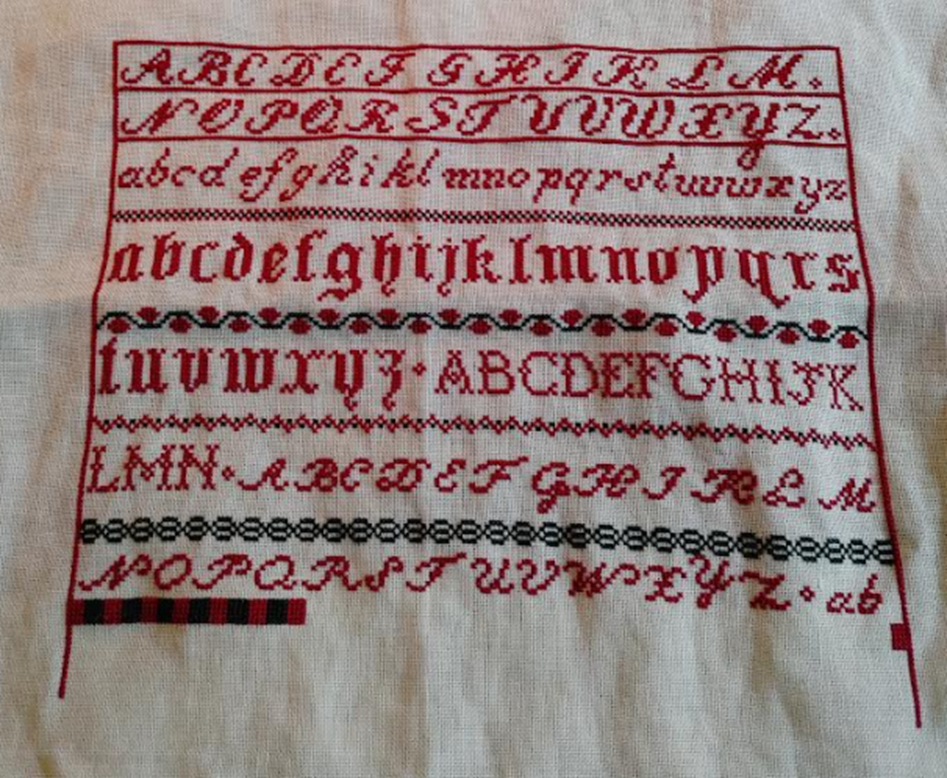 A B C D E F G H I K L M.
N O P Q R S T U V W X Y Z.
a b c d e f g h i k l m n o p q r s t u v w x y z
a b c d e f g h i j k l m n o p q r s
t u v w x y z · A B C D E F G H I J K
L M N · A B C D E F G H I K L M
N O P Q R S T U V W X Y Z · a b